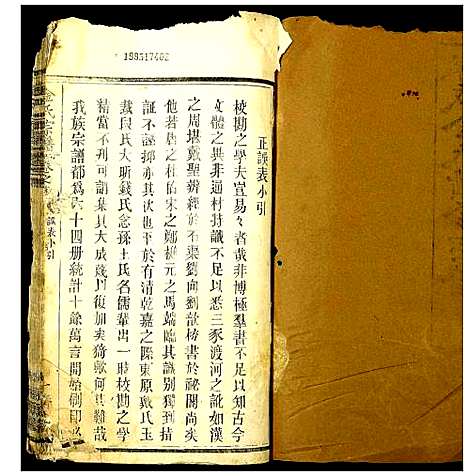 198517402
正誤表小引
校勘之學夫豈易々者哉非博極羣書不足以知古今
文體之異非通村持識不足以悉三豕渡河之訛如漢
之周堪戴聖辨經於石渠劉向劉歆校書於祕閣尚矣
他若唐之杜佑宋之鄭樵元之馬端臨其識别獨到持
証不謬抑亦其次也平於有清乾嘉之際東原戴氏玉
裁段氏大昕錢氏念孫王氏名儒輩出一時校勘之學
精當不刋可謂集其大成蔑以復加矣猗歟何其難哉
我族宗譜都爲六十四册統計十餘萬言開始刷印必
氏宗譜
誤表小引